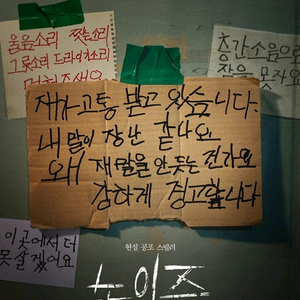 울음소리 쫓는소리
그릇소리 드라이기소리
멈춰주세요
층간소음으로
잠을 못자요
제가 고통 받고 있습니다.
내 말이 장난 같나요
왜 제 말을 안 듣는 건가요
강하게 경고합니다
이 곳에서 더
못 살겠어요
현실 공포 스릴러
노이즈